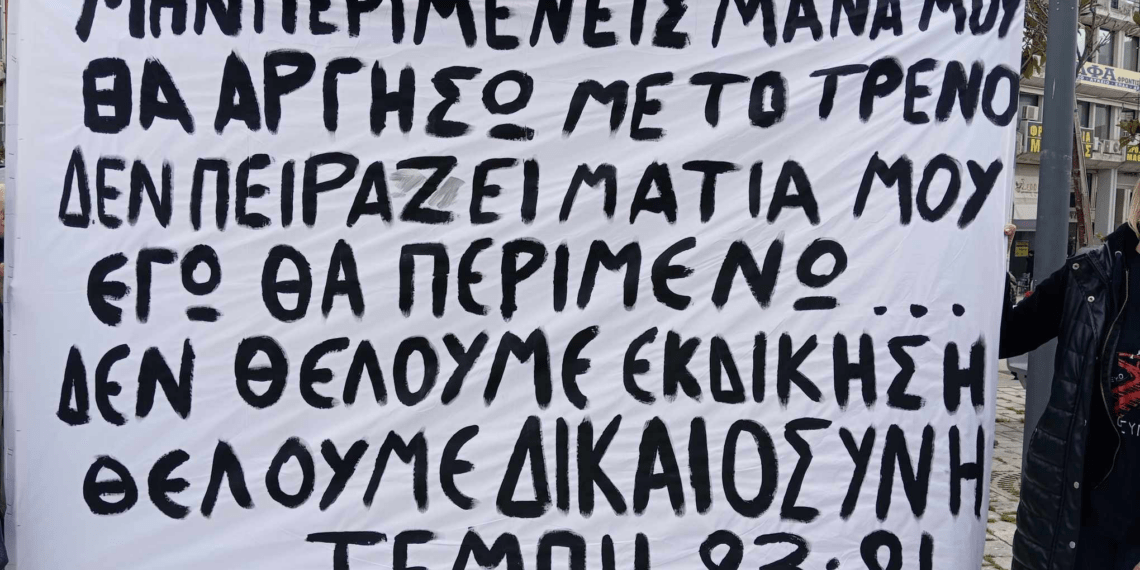 ΜΗΝ ΠΕΡΙΜΕΝΕΙΣ ΜΑΝΑ ΜΟΥ
ΘΑ ΑΡΓΗΣΩ ΜΕ ΤΟ ΤΡΕΝΟ
ΔΕΝ ΠΕΙΡΑΖΕΙ ΜΑΤΙΑ ΜΟΥ
ΕΓΩ ΘΑ ΠΕΡΙΜΕΝΩ...
ΔΕΝ ΘΕΛΟΥΜΕ ΕΚΔΙΚΗΣΗ
ΘΕΛΟΥΜΕ ΔΙΚΑΙΟΣΥΝΗ
ΤΕΜΠΗ 23:21